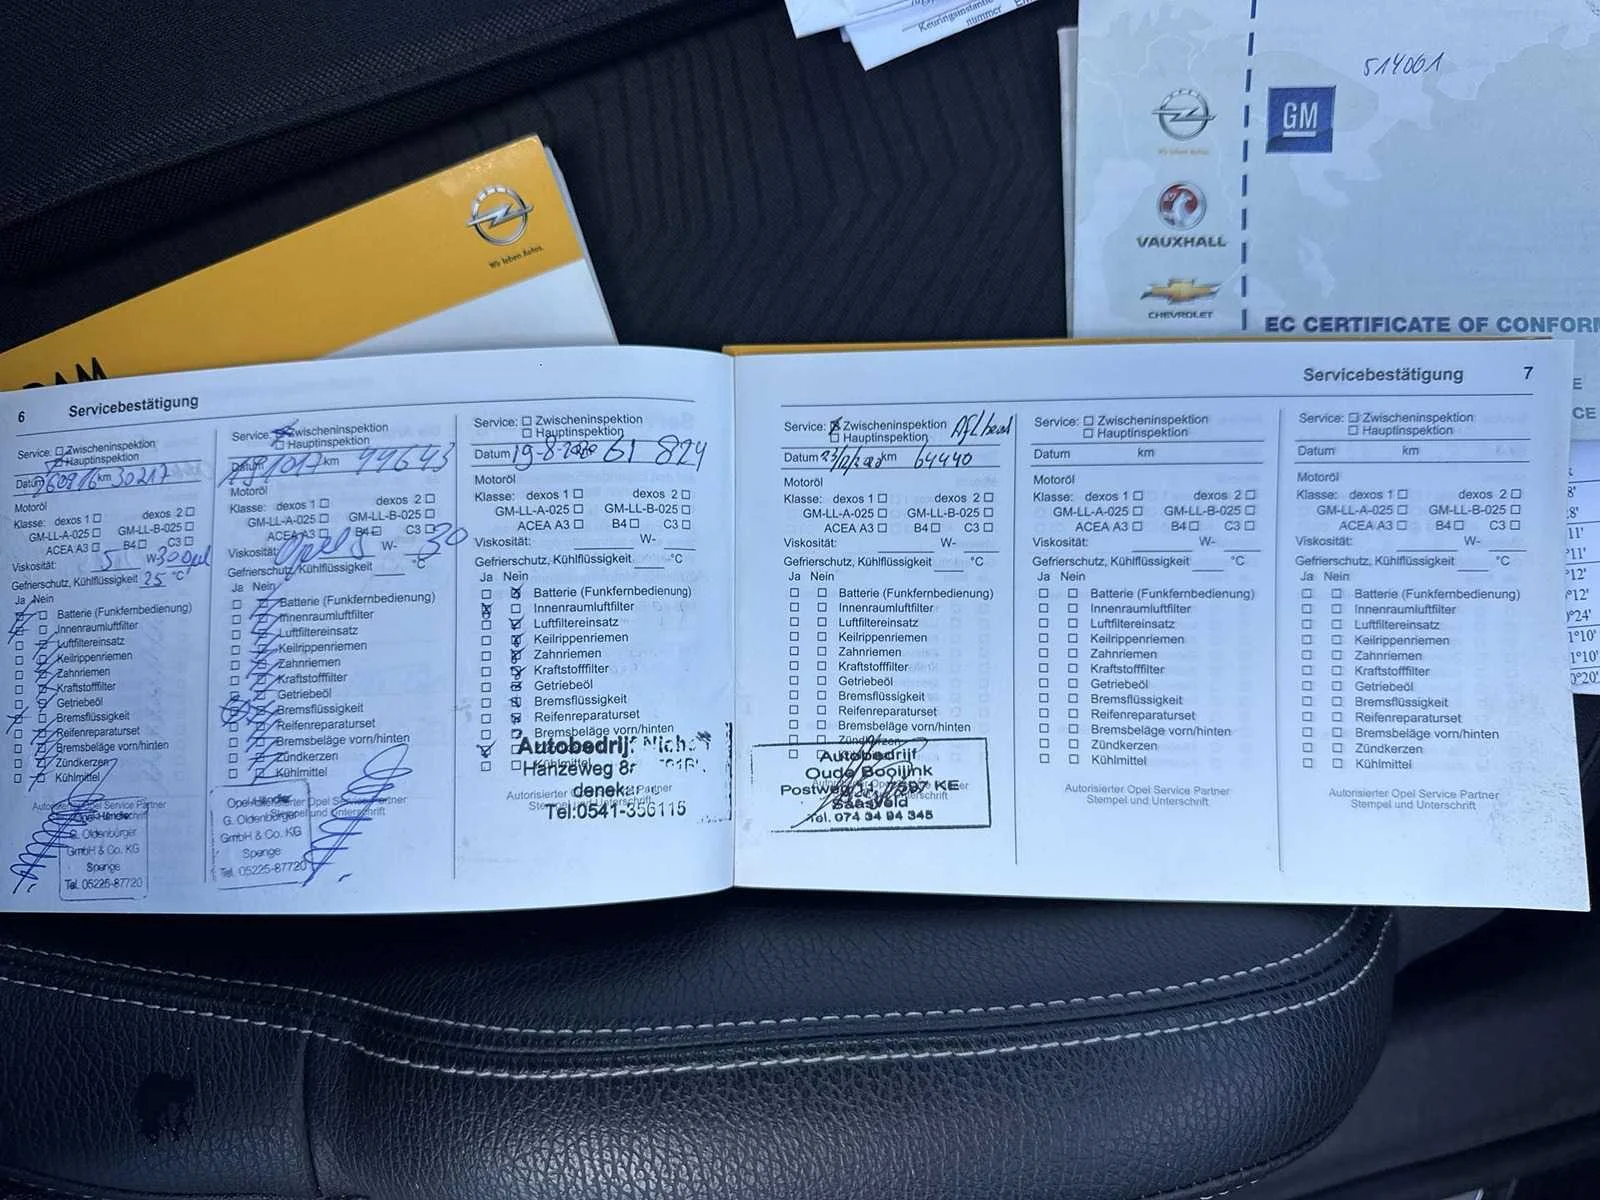 Keuringsinstantie
nummer
514001
GM
Wir leben Autos.
VAUXHALL
CHEVROLET
EC CERTIFICATE OF CONFOR
Wir leben Autos.
6 Servicebestätigung
Service: Zwischeninspektion
Hauptinspektion
Datum 160916 km 30217
Motoröl
Klasse: dexos 1 dexos 2
GM-LL-A-025 GM-LL-B-025
ACEA A3 B4 C3
Viskosität: 5 W-30 Opel
Gefrierschutz, Kühlflüssigkeit 25 °C
Ja Nein
Batterie (Funkfernbedienung)
Innenraumluftfilter
Luftfiltereinsatz
Keilrippenriemen
Zahnriemen
Kraftstofffilter
Getriebeöl
Bremsflüssigkeit
Reifenreparaturset
Bremsbeläge vorn/hinten
Zündkerzen
Kühlmittel
Autorisierter Opel Service Partner
Opel-Händler
G. Oldenbürger
GmbH & Co. KG
Spenge
Tel. 05225-87720
Service: Zwischeninspektion
Hauptinspektion
Datum 191017 km 44643
Motoröl
Klasse: dexos 1 dexos 2
GM-LL-A-025 GM-LL-B-025
ACEA A3 B4 C3
Viskosität: Opel 5 W- 30
Gefrierschutz, Kühlflüssigkeit °C
Ja Nein
Batterie (Funkfernbedienung)
Innenraumluftfilter
Luftfiltereinsatz
Keilrippenriemen
Zahnriemen
Kraftstofffilter
Getriebeöl
Bremsflüssigkeit
Reifenreparaturset
Bremsbeläge vorn/hinten
Zündkerzen
Kühlmittel
Autorisierter Opel Service Partner
Stempel und Unterschrift
Opel-Händler
G. Oldenbürger
GmbH & Co. KG
Spenge
Tel. 05225-87720
Service: Zwischeninspektion
Hauptinspektion
Datum 19-8-2020 61 824
Motoröl
Klasse: dexos 1 dexos 2
GM-LL-A-025 GM-LL-B-025
ACEA A3 B4 C3
Viskosität: W-
Gefrierschutz, Kühlflüssigkeit °C
Ja Nein
Batterie (Funkfernbedienung)
Innenraumluftfilter
Luftfiltereinsatz
Keilrippenriemen
Zahnriemen
Kraftstofffilter
Getriebeöl
Bremsflüssigkeit
Reifenreparaturset
Bremsbeläge vorn/hinten
Kühlmittel
Autorisierter Opel Service Partner
Stempel und Unterschrift
Autobedrijf
Hanzeweg
Tel:0541-356115
Servicebestätigung 7
Service: Zwischeninspektion
Hauptinspektion
Datum km 64440
Motoröl
Klasse: dexos 1 dexos 2
GM-LL-A-025 GM-LL-B-025
ACEA A3 B4 C3
Viskosität: W-
Gefrierschutz, Kühlflüssigkeit °C
Ja Nein
Batterie (Funkfernbedienung)
Innenraumluftfilter
Luftfiltereinsatz
Keilrippenriemen
Zahnriemen
Kraftstofffilter
Getriebeöl
Bremsflüssigkeit
Reifenreparaturset
Bremsbeläge vorn/hinten
Zündkerzen
Autobedrijf
Oude Booijink
Postweg 11, 7597 KE
Saasveld
Tel. 074 34 94 345
Service: Zwischeninspektion
Hauptinspektion
Datum km
Motoröl
Klasse: dexos 1 dexos 2
GM-LL-A-025 GM-LL-B-025
ACEA A3 B4 C3
Viskosität: W-
Gefrierschutz, Kühlflüssigkeit °C
Ja Nein
Batterie (Funkfernbedienung)
Innenraumluftfilter
Luftfiltereinsatz
Keilrippenriemen
Zahnriemen
Kraftstofffilter
Getriebeöl
Bremsflüssigkeit
Reifenreparaturset
Bremsbeläge vorn/hinten
Zündkerzen
Kühlmittel
Autorisierter Opel Service Partner
Stempel und Unterschrift
Service: Zwischeninspektion
Hauptinspektion
Datum km
Motoröl
Klasse: dexos 1 dexos 2
GM-LL-A-025 GM-LL-B-025
ACEA A3 B4 C3
Viskosität: W-
Gefrierschutz, Kühlflüssigkeit °C
Ja Nein
Batterie (Funkfernbedienung)
Innenraumluftfilter
Luftfiltereinsatz
Keilrippenriemen
Zahnriemen
Kraftstofffilter
Getriebeöl
Bremsflüssigkeit
Reifenreparaturset
Bremsbeläge vorn/hinten
Zündkerzen
Kühlmittel
Autorisierter Opel Service Partner
Stempel und Unterschrift